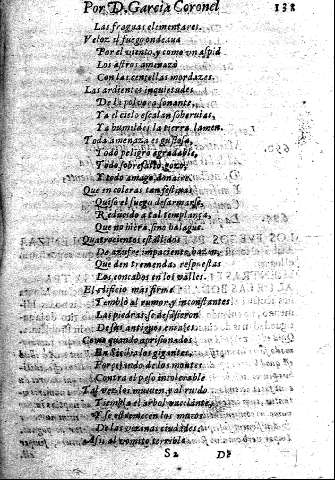 Por D. Garcia Coronel 138
Las fraguas elementares.
Veloz el fuego ondeaua
Por el viento, y como vn aspid
Los astros amenazò
Con las centellas mordazes.
Las ardientes inquietudes
De la poluora sonante,
Ya el cielo escalan soberuias,
Ya humildes la tierra lamen.
Toda amenaza es gustosa,
Todo peligro agradable,
Todo sobresalto gozo,
Y todo amago donaire.
Que en coleras tan festiuas
Quiso el fuego desarmarse,
Reducido a tal templança,
Que no hiera, sino halague.
Quatrocientos estallidos
De azufre impaciente,
Que den tremendas respuestas
Los concabos en los valles.
El edificio mas firme
Temblò al rumor, y inconstantes
Las piedras, se desasieron
De sus antiguos engastes.
Como quando aprisionados
En Sicilia los gigantes,
Forcejando de los montes
Contra el peso intolerable
Tal vez los mueuen, y al ruido
Tiembla el arbol vacilante,
Y se estremecen los muros
De las vezinas ciudades.
Assi al vomito terrible
S2 De